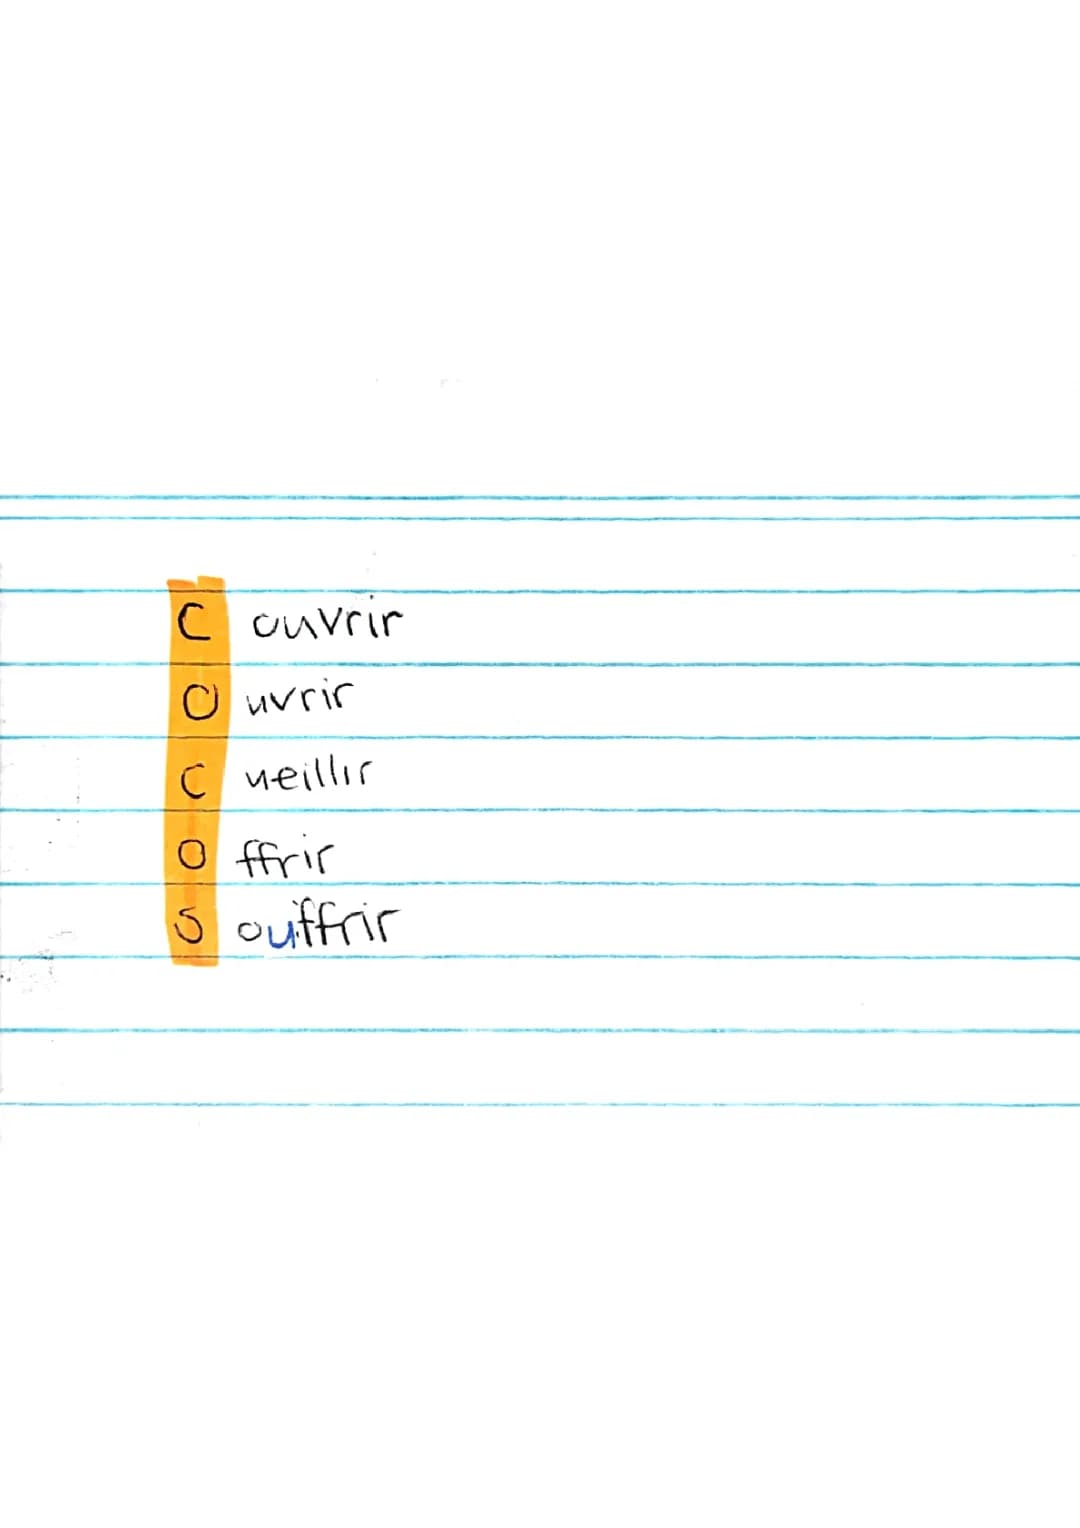 C ouvrir
O uvrir
C ueillir
O ffrir
S ouffrir